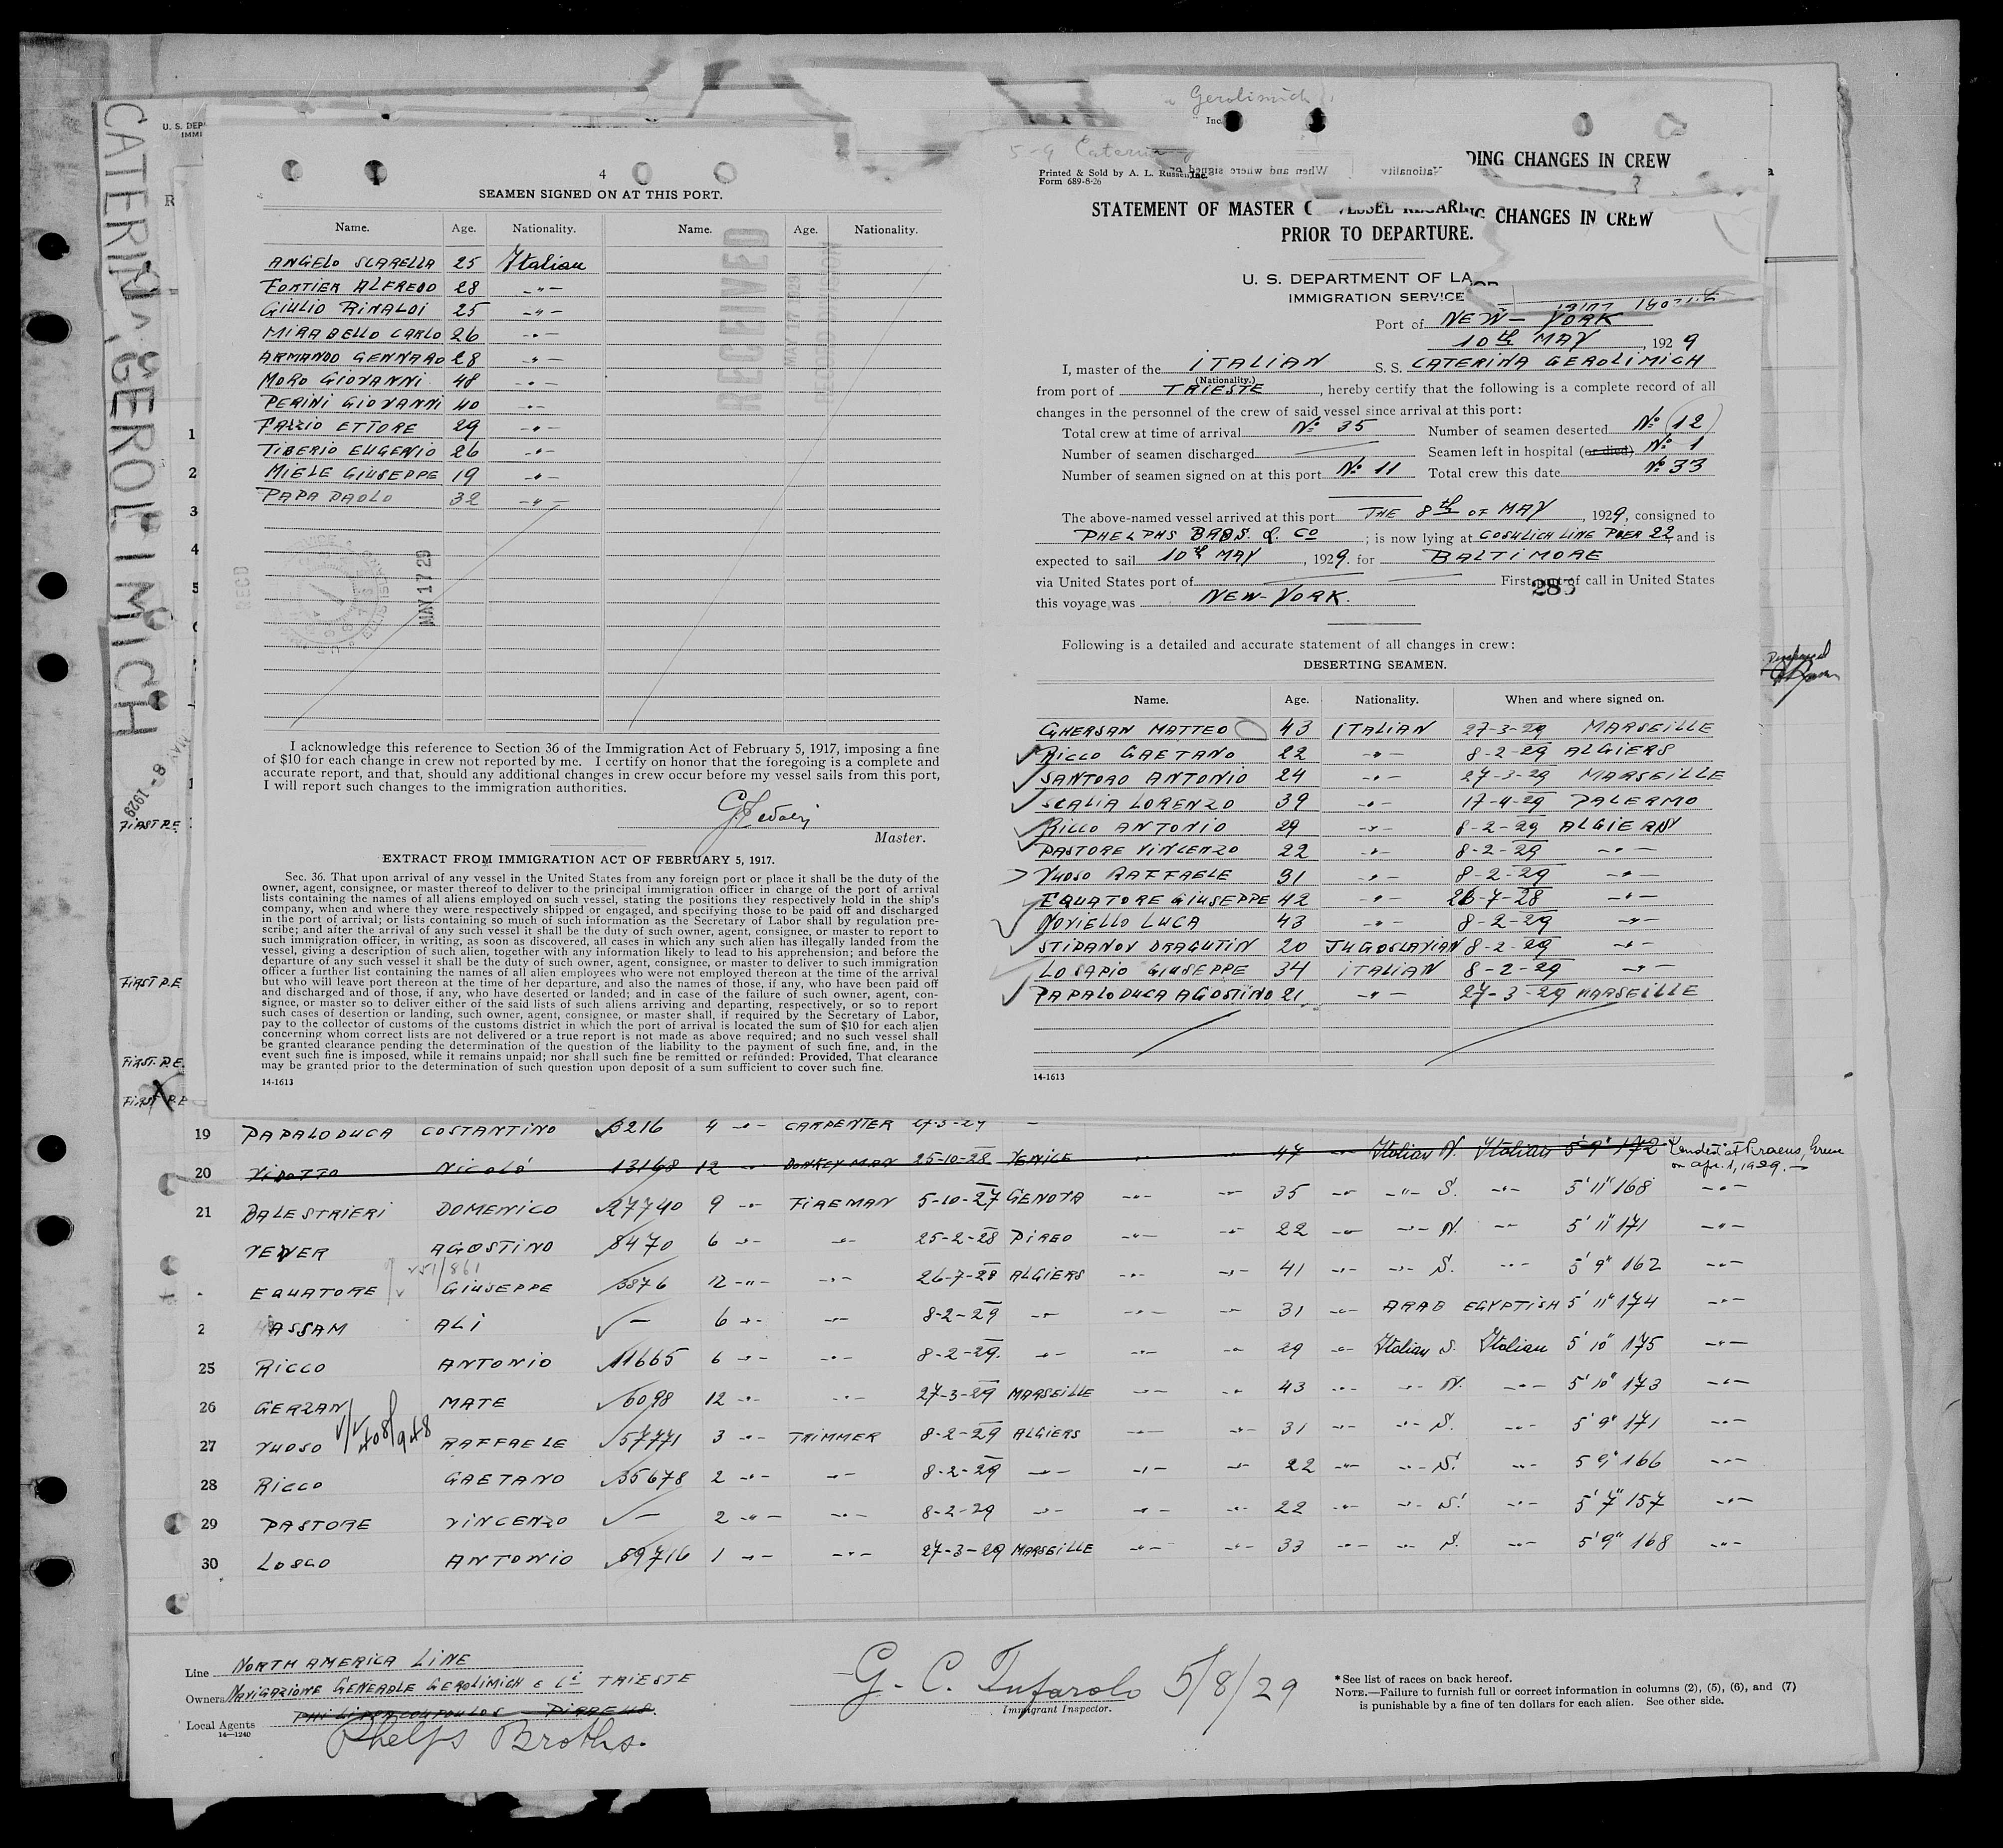 CATERINA GEROLIMICH
MAY - 8 1929
4
SEAMEN SIGNED ON AT THIS PORT.
Name. Age. Nationality. Name. Age. Nationality.
ANGELO SCARELLA 25 Italian
FORTIER ALFREDO 28 -"-
GIULIO RINALDI 25 -"-
MIRABELLO CARLO 26 -"-
ARMANDO GENNARO 28 -"-
MORO GIOVANNI 48 -"-
PERINI GIOVANNI 40 -"-
FAZZIO ETTORE 29 -"-
TIBERIO EUGENIO 26 -"-
MIELE GIUSEPPE 19 -"-
PAPA PAOLO 32 -"-
RECEIVED
MAY 17 1929
RECORD DIVISION
RECD
MAY 17 29
I acknowledge this reference to Section 36 of the Immigration Act of February 5, 1917, imposing a fine
of $10 for each change in crew not reported by me. I certify on honor that the foregoing is a complete and
accurate report, and that, should any additional changes in crew occur before my vessel sails from this port,
I will report such changes to the immigration authorities.
Master.
EXTRACT FROM IMMIGRATION ACT OF FEBRUARY 5, 1917.
Sec. 36. That upon arrival of any vessel in the United States from any foreign port or place it shall be the duty of the
owner, agent, consignee, or master thereof to deliver to the principal immigration officer in charge of the port of arrival
lists containing the names of all aliens employed on such vessel, stating the positions they respectively hold in the ship's
company, when and where they were respectively shipped or engaged, and specifying those to be paid off and discharged
in the port of arrival; or lists containing so much of such information as the Secretary of Labor shall by regulation pre-
scribe; and after the arrival of any such vessel it shall be the duty of such owner, agent, consignee, or master to report to
such immigration officer, in writing, as soon as discovered, all cases in which any such alien has illegally landed from the
vessel, giving a description of such alien, together with any information likely to lead to his apprehension; and before the
departure of any such vessel it shall be the duty of such owner, agent, consignee, or master to deliver to such immigration
officer a further list containing the names of all alien employees who were not employed thereon at the time of the arrival
but who will leave port thereon at the time of her departure, and also the names of those, if any, who have been paid off
and discharged and of those, if any, who have deserted or landed; and in case of the failure of such owner, agent, con-
signee, or master so to deliver either of the said lists of such aliens arriving and departing, respectively, or so to report
such cases of desertion or landing, such owner, agent, consignee, or master shall, if required by the Secretary of Labor,
pay to the collector of customs of the customs district in which the port of arrival is located the sum of $10 for each alien
concerning whom correct lists are not delivered or a true report is not made as above required; and no such vessel shall
be granted clearance pending the determination of the question of the liability to the payment of such fine, and, in the
event such fine is imposed, while it remains unpaid; nor shall such fine be remitted or refunded: Provided, That clearance
may be granted prior to the determination of such question upon deposit of a sum sufficient to cover such fine.
14-1613
Gerolimich
Inc.
Printed & Sold by A. L. Russell Inc.
Form 689-8-26
When and where signed Nationality
DING CHANGES IN CREW
STATEMENT OF MASTER NG CHANGES IN CREW
PRIOR TO DEPARTURE.
U. S. DEPARTMENT OF LABOR
IMMIGRATION SERVICE
Port of NEW-YORK
10th MAY, 1929
I, master of the ITALIAN S. S. CATERINA GEROLIMICH
(Nationality.)
from port of TRIESTE, hereby certify that the following is a complete record of all
changes in the personnel of the crew of said vessel since arrival at this port:
Total crew at time of arrival No 35 Number of seamen deserted No (12)
Number of seamen discharged Seamen left in hospital (or died) No 1
Number of seamen signed on at this port No 11 Total crew this date No 33
The above-named vessel arrived at this port THE 8th OF MAY, 1929, consigned to
PHELPHS BROS. & Co; is now lying at COSULICH LINE PIER 22, and is
expected to sail 10th MAY, 1929. for BALTIMORE
via United States port of First port of call in United States
this voyage was NEW-YORK.
Following is a detailed and accurate statement of all changes in crew:
DESERTING SEAMEN.
Name. Age. Nationality. When and where signed on.
GHERSAN MATTEO 43 ITALIAN 27-3-29 MARSEILLE
RICCO GAETANO 22 -"- 8-2-29 ALGIERS
SANTORO ANTONIO 24 -"- 27-3-29 MARSEILLE
SCALIA LORENZO 39 -"- 17-4-29 PALERMO
RICCO ANTONIO 29 -"- 8-2-29 ALGIERS
PASTORE VINCENZO 22 -"- 8-2-29 -"-
VUOSO RAFFAELE 31 -"- 8-2-29 -"-
EQUATORE GIUSEPPE 42 -"- 26-7-28 -"-
NOVIELLO LUCA 43 -"- 8-2-29 -"-
STIPANOV DRAGUTIN 20 JUGOSLAVIAN 8-2-29 -"-
LO SAPIO GIUSEPPE 34 ITALIAN 8-2-29 -"-
PAPALODUCA AGOSTINO 21 -"- 27-3-29 MARSEILLE
14-1613
19 PAPALODUCA COSTANTINO 3216 4 -"- CARPENTER
20 VIDOTTO NICOLÓ 13168 12 DONKEYMAN 25-10-28 VENICE 47 Italian N. Italian 5'9" 172 Landed at Piraeus, Greece
on Apr. 1, 1929.
21 BALESTRIERI DOMENICO 27740 9 -"- FIREMAN 5-10-27 GENOVA -"- -"- 35 -"- -"- S. -"- 5'11" 168 -"-
VENER AGOSTINO 8470 6 -"- -"- 25-2-28 PIREO -"- -"- 22 -"- -"- N. -"- 5'11" 171 -"-
EQUATORE GIUSEPPE 3876 12 -"- -"- 26-7-28 ALGIERS -"- -"- 41 -"- -"- S. -"- 5'9" 162 -"-
2 HASSAM ALI - 6 -"- -"- 8-2-29 -"- -"- -"- 31 -"- ARAB EGYPTISH 5'11" 174 -"-
25 RICCO ANTONIO 11665 6 -"- -"- 8-2-29. -"- -"- -"- 29 -"- Italian S. Italian 5'10" 175 -"-
26 GERZAN MATE 6098 12 -"- -"- 27-3-29 MARSEILLE -"- -"- 43 -"- -"- N. -"- 5'10" 173 -"-
27 VUOSO RAFFAELE 57771 3 -"- TRIMMER 8-2-29 ALGIERS -"- -"- 31 -"- -"- S. -"- 5'9" 171 -"-
28 RICCO GAETANO 35678 2 -"- -"- 8-2-29 -"- -"- -"- 22 -"- -"- S. -"- 5'9" 166 -"-
29 PASTORE VINCENZO - 2 -"- -"- 8-2-29 -"- -"- -"- 22 -"- -"- S. -"- 5'7" 157 -"-
30 LOSCO ANTONIO 59716 1 -"- -"- 27-3-29 MARSEILLE -"- -"- 33 -"- -"- S. -"- 5'9" 168 -"-
Line NORTH AMERICA LINE
Owners NAVIGAZIONE GENERALE GEROLIMICH & Ci TRIESTE
Local Agents
Phelps Broths.
14-1240
G. C. Tufarolo 5/8/29
Immigrant Inspector.
*See list of races on back hereof.
NOTE.—Failure to furnish full or correct information in columns (2), (5), (6), and (7)
is punishable by a fine of ten dollars for each alien. See other side.